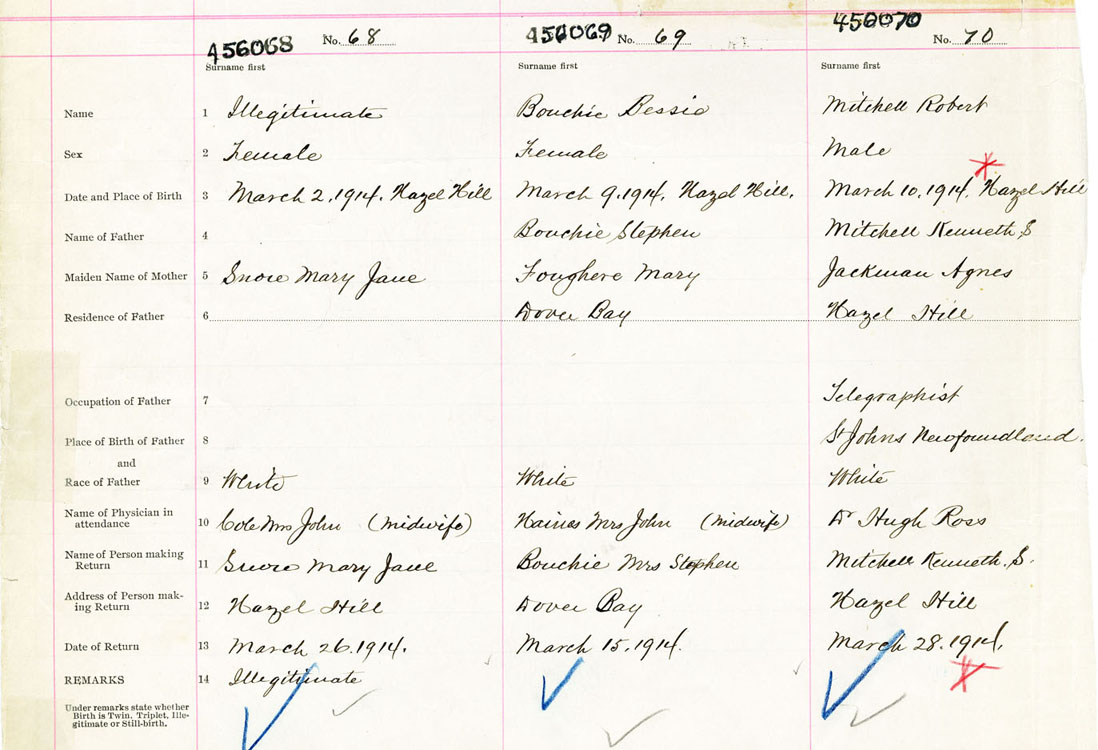 456068 No. 68 456069 No. 69 456070 No. 70
Surname first Surname first Surname first
Name 1 Illegitimate Bouchie Bessie Mitchell Robert
Sex 2 Female Female Male
Date and Place of Birth 3 March 2, 1914. Hazel Hill March 9, 1914, Hazel Hill. March 10, 1914, Hazel Hill
Name of Father 4 Bouchie Stephen Mitchell Kenneth S
Maiden Name of Mother 5 Snow Mary Jane Foughere Mary Jackman Agnes
Residence of Father 6 Dover Bay Hazel Hill
Occupation of Father 7 Telegraphist
Place of Birth of Father 8 St Johns Newfoundland.
and
Race of Father 9 White White White
Name of Physician in
attendance 10 Cole Mrs John (midwife) Haines Mrs John (midwife) Dr Hugh Ross
Name of Person making
Return 11 Snow Mary Jane Bouchie Mrs Stephen Mitchell Kenneth. S.
Address of Person mak-
ing Return 12 Hazel Hill Dover Bay Hazel Hill
Date of Return 13 March 26. 1914. March 15, 1914. March 28. 1914.
REMARKS 14 Illegitimate
Under remarks state whether
Birth is Twin, Triplet, Ille-
gitimate or Still-birth.